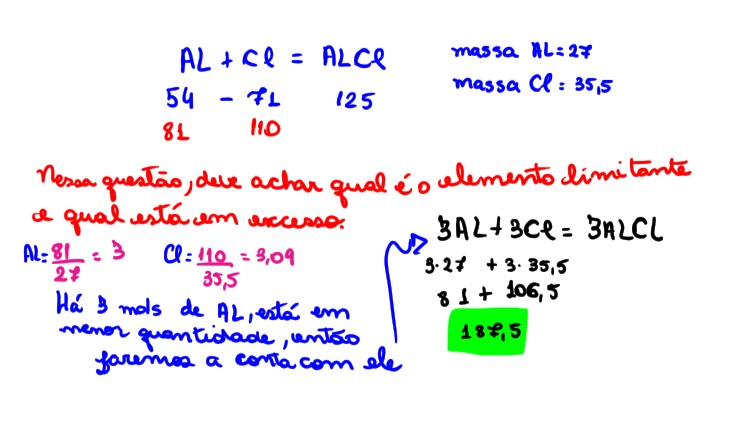 AL + Cl = ALCl
massa AL = 27
massa Cl = 35,5
54 - 71 125
81 110
Nessa questão, deve achar qual é o elemento limitante
e qual está em excesso.
AL = 81/27 = 3 Cl = 110/35,5 = 3,09
Há 3 mols de AL, está em
menor quantidade, então
faremos a conta com ele
3AL + 3Cl = 3ALCL
3.27 + 3.35,5
81 + 106,5
187,5